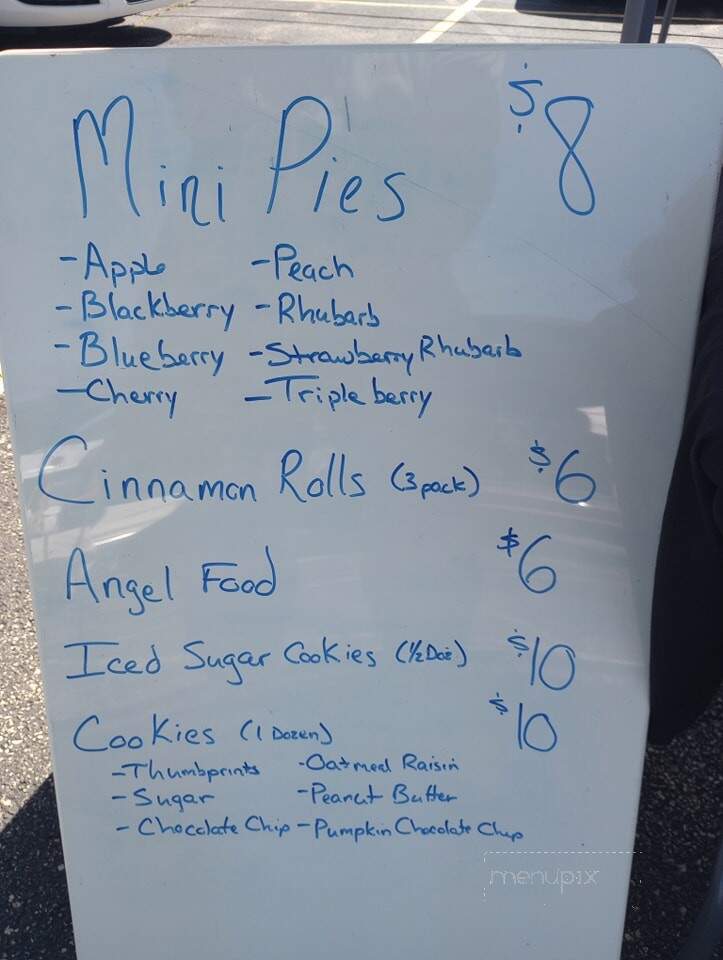 Mini Pies $8
-Apple -Peach
-Blackberry -Rhubarb
-Blueberry -Strawberry Rhubarb
-Cherry -Triple berry
Cinnamon Rolls (3 pack) $6
Angel Food $6
Iced Sugar Cookies (1/2 Doz) $10
Cookies (1 Dozen) $10
-Thumbprints -Oatmeal Raisin
-Sugar -Peanut Butter
-Chocolate Chip -Pumpkin Chocolate Chip
menupix